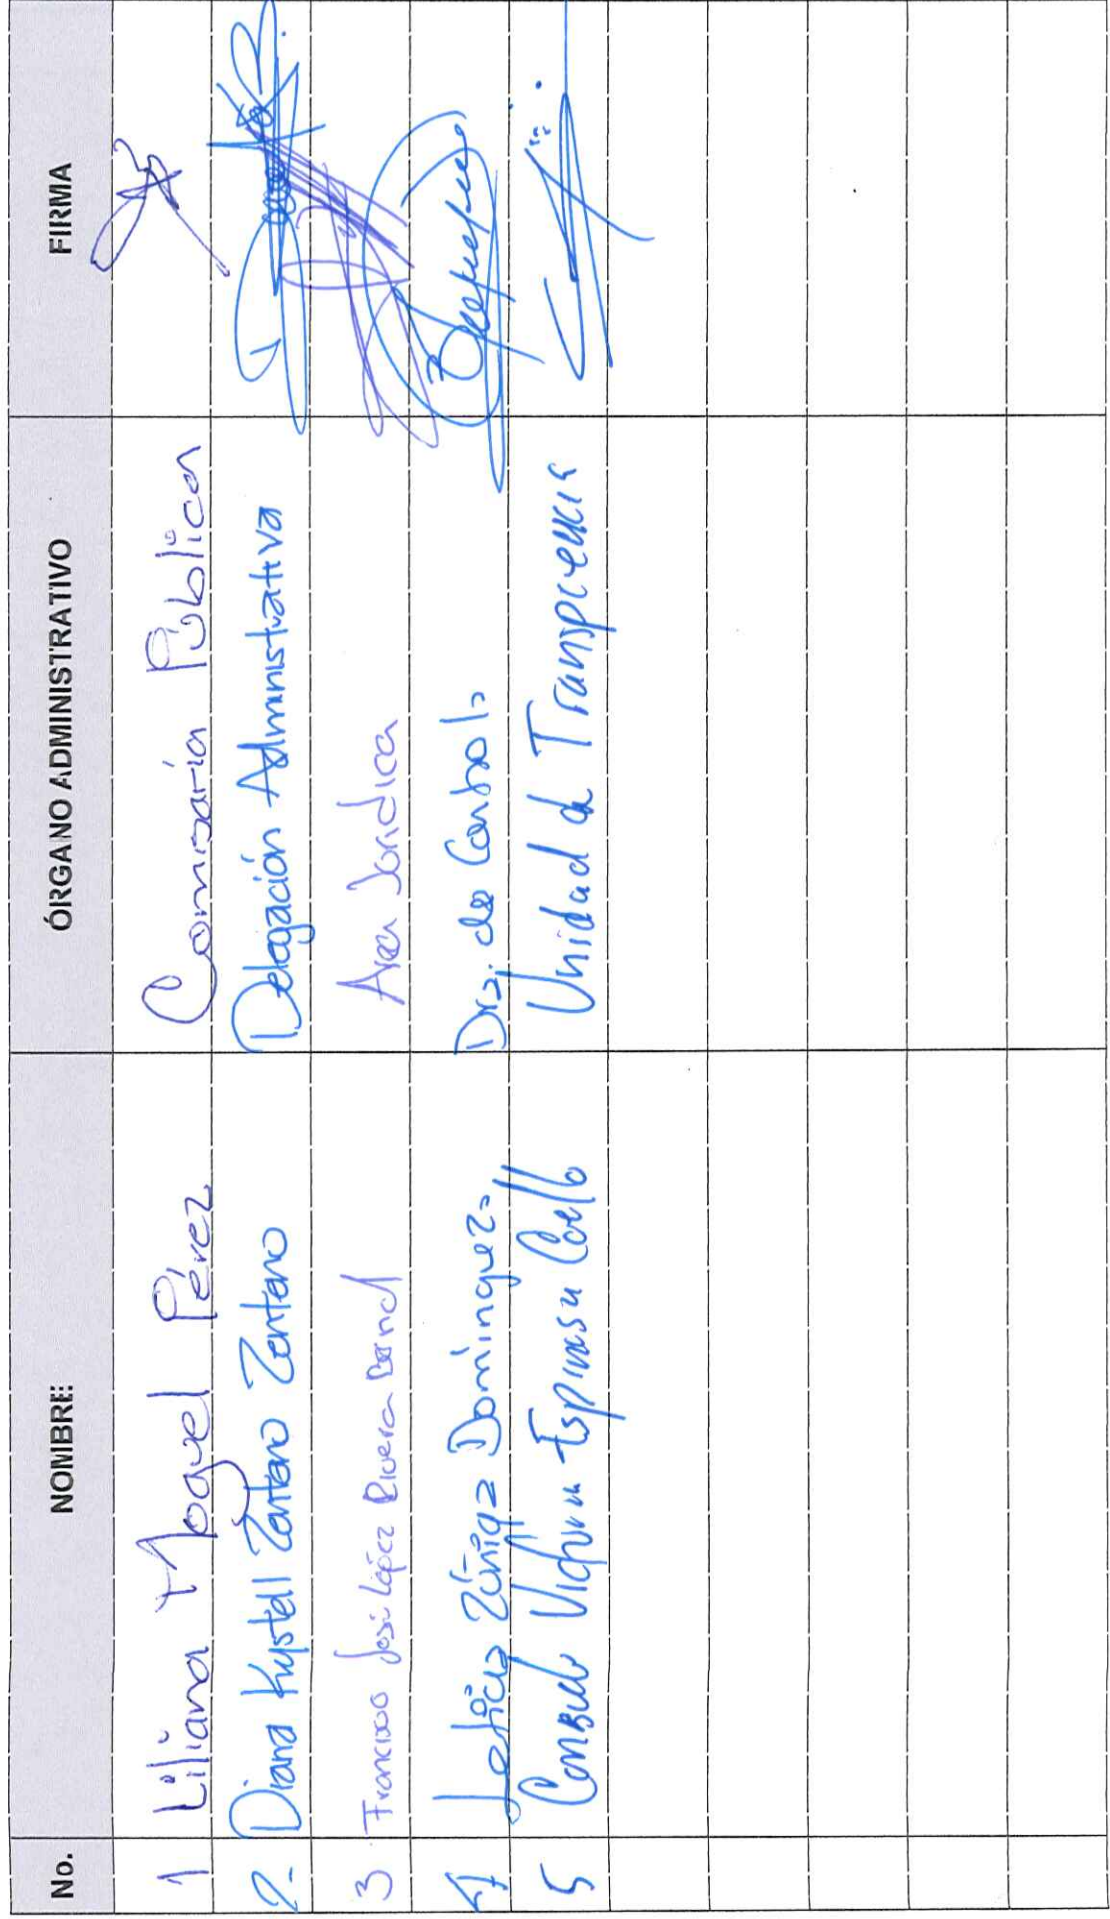 No. NOMBRE: ÓRGANO ADMINISTRATIVO FIRMA
1 Liliana Moguel Pérez Comisaría Pública
2- Diana Krystell Zenteno Zenteno Delegación Administrativa
3 Francisco José López Rivera Area Juridica
4 Leticia Zúñiga Domínguez Dir. de Control.
5 Consuelo Espinosa Coello Unidad de Transprencia